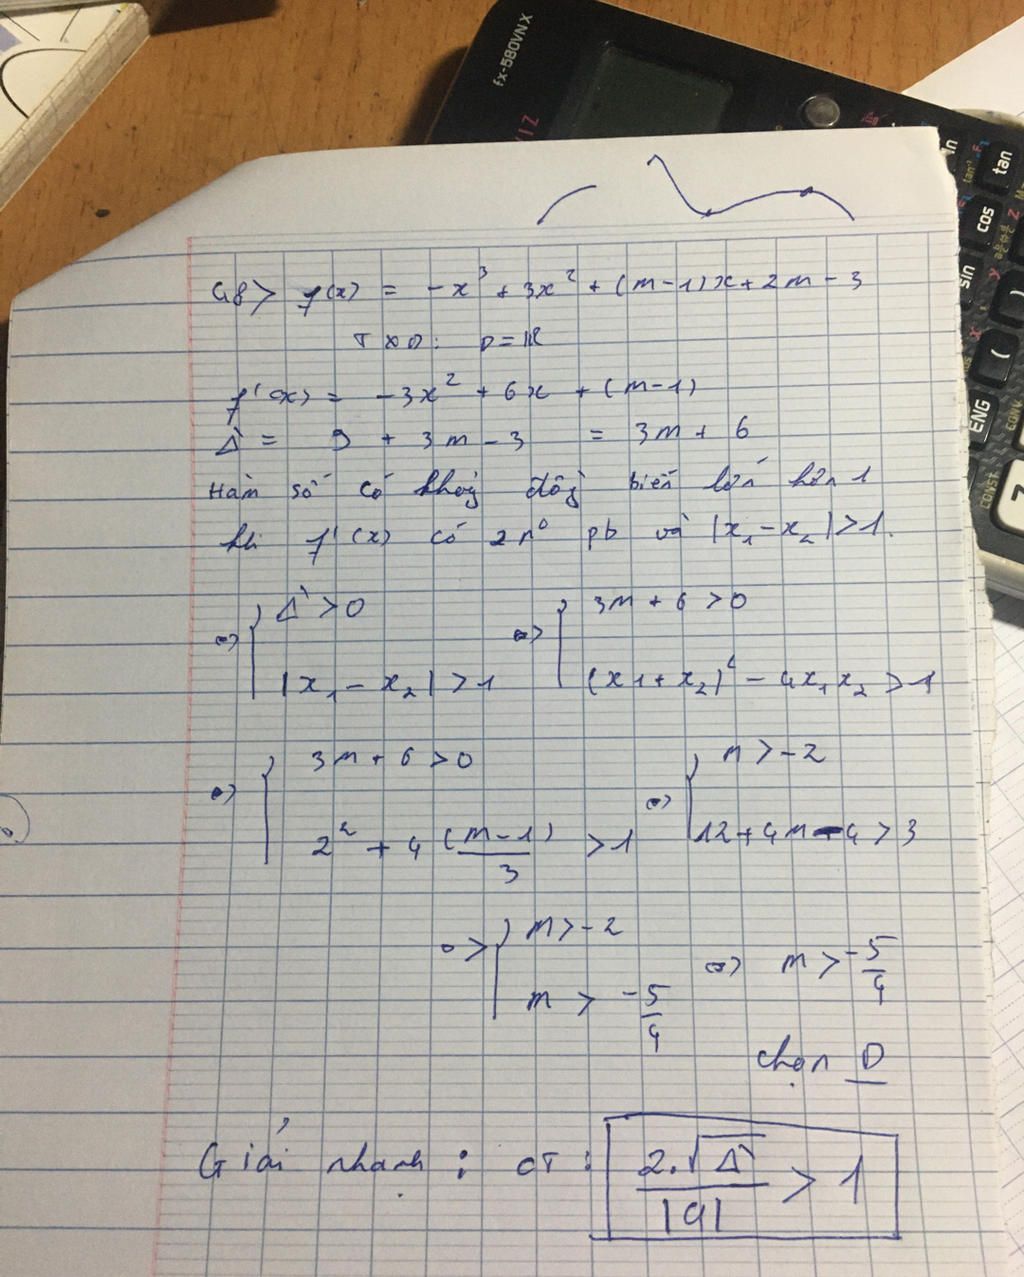 fx-580VNX
tan
cos
sin
(
)
ENG
7
48> f(x) = -x³ + 3x² + (m-1)x + 2m - 3
TXD: D = ℝ
f'(x) = -3x² + 6x + (m-1)
Δ' = 9 + 3m - 3 = 3m + 6
Hàm số có khoảg đồg biến lớn hơn 1
khi f'(x) có 2 n⁰ pb và |x₁ - x₂| > 1.
<=> { Δ' > 0 <=> { 3m + 6 > 0
|x₁ - x₂| > 1 (x1 + x₂)² - 4x₁x₂ > 1
<=> { 3m + 6 > 0 <=> { m > -2
2² + 4 (m-1)/3 > 1 12 + 4m - 4 > 3
=> { m > -2 <=> m > -5/4
m > -5/4
chọn D
Giải nhanh : CT : 2.√Δ'/|a| > 1